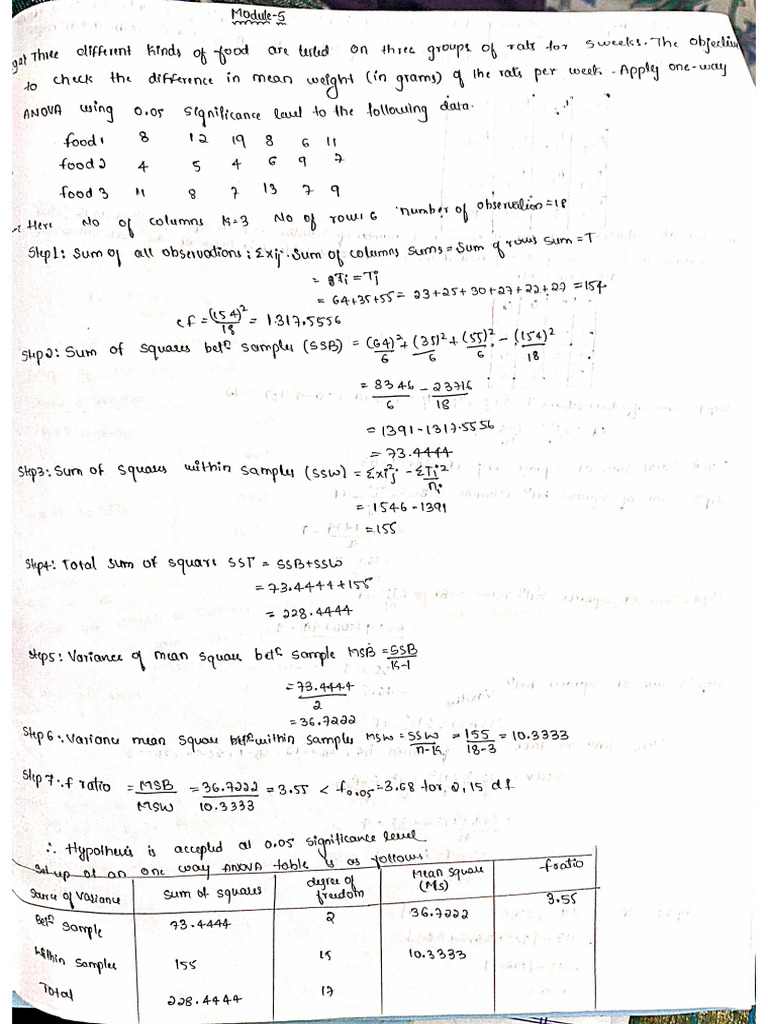 Module-5
Three different kinds of food are tested on three groups of rats for 5 weeks. The objective
to check the difference in mean weight (in grams) of the rats per week. Apply one-way
ANOVA using 0.05 significance level to the following data.
food 1 8 12 19 8 6 11
food 2 4 5 4 6 9 7
food 3 11 8 7 13 7 9
Here No of columns k=3 No of rows 6 number of observation = 18
Step1: Sum of all observations; Σxij. Sum of columns sums = Sum of rows sum = T
= Tj
= 64+35+55 = 23+25+30+27+22+27 = 154
cf = (154)² / 18 = 1317.5556
Step2: Sum of squares betⁿ samples (SSB) = (64)²/6 + (35)²/6 + (55)²/6 - (154)²/18
= 8346/6 - 23716/18
= 1391-1317.5556
= 73.4444
Step3: Sum of squares within samples (SSW) = Σxij² - ΣTj²/nj
= 1546-1391
= 155
Step4: Total sum of square SST = SSB+SSW
= 73.4444+155
= 228.4444
Step5: Variance of mean square betⁿ sample MSB = SSB/k-1
= 73.4444/2
= 36.7222
Step 6: Variance mean square within samples MSW = SSW/n-k = 155/18-3 = 10.3333
Step 7: f ratio = MSB/MSW = 36.7222/10.3333 = 3.55 < f0.05 = 3.68 for 2, 15 df
∴ Hypothesis is accepted at 0.05 significance level
Set up of an one way ANOVA table is as follows:
Source of Variance Sum of squares degree of freedom Mean Square (Ms) f ratio
Betⁿ Sample 73.4444 2 36.7222 3.55
Within Samples 155 15 10.3333
Total 228.4444 17